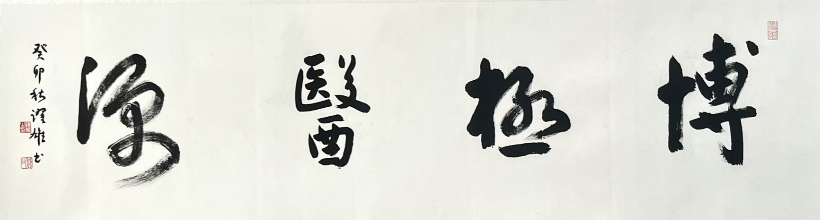 博極醫源
癸卯秋雄书